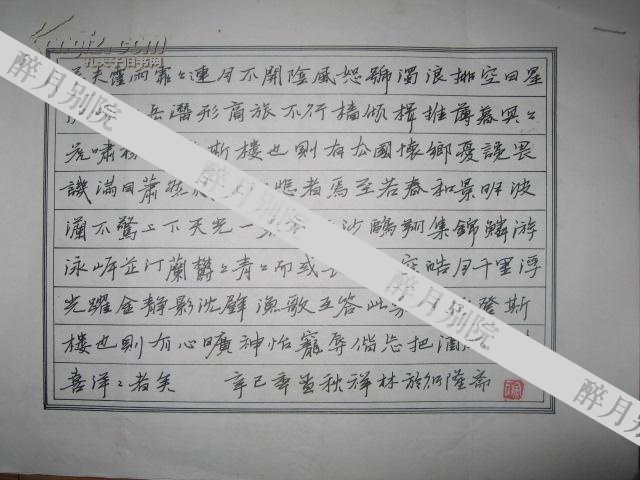 若夫霪雨霏〻連月不開陰風怒號濁浪排空日星
岳潛形商旅不行檣傾楫摧薄暮冥〻
虎嘯 斯樓也則有去國懷鄉憂讒畏
譏滿目蕭然 悲者焉至若春和景明波
瀾不驚上下天光一 沙鷗翔集錦鱗游
泳岸芷汀蘭鬱〻青〻而或長 空皓月千里浮
光躍金靜影沈璧漁歌互答此 登斯
樓也則有心曠神怡寵辱偕忘把酒
喜洋〻者矣 辛巳年 秋祥林於 隆齋
醉月别院
醉月别院
醉月别院
醉月别院
孔夫子旧书网